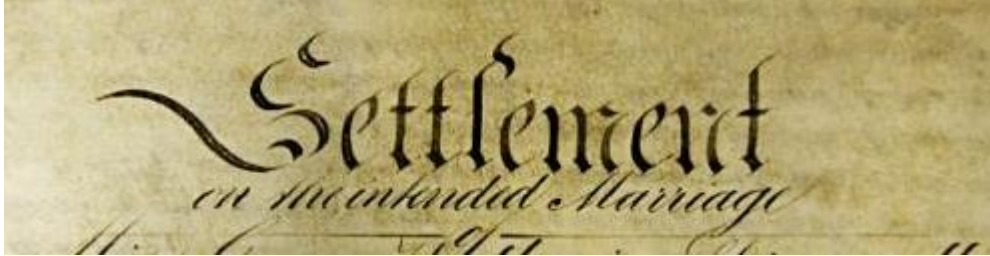 Settlement
on the intended Marriage
of